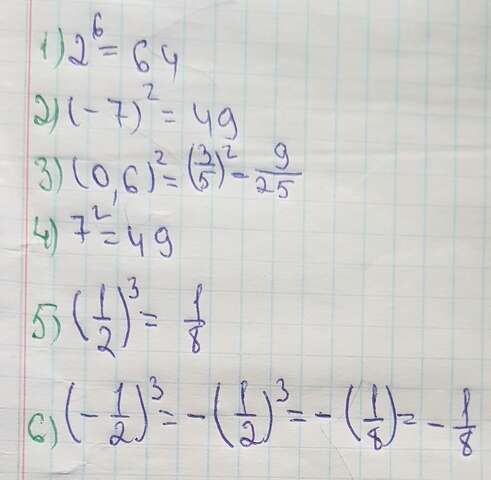 1) 2^6 = 64
2) (-7)^2 = 49
3) (0,6)^2 = (3/5)^2 - 9/25
4) 7^2 = 49
5) (1/2)^3 = 1/8
6) (-1/2)^3 = -(1/2)^3 = -(1/8) = -1/8